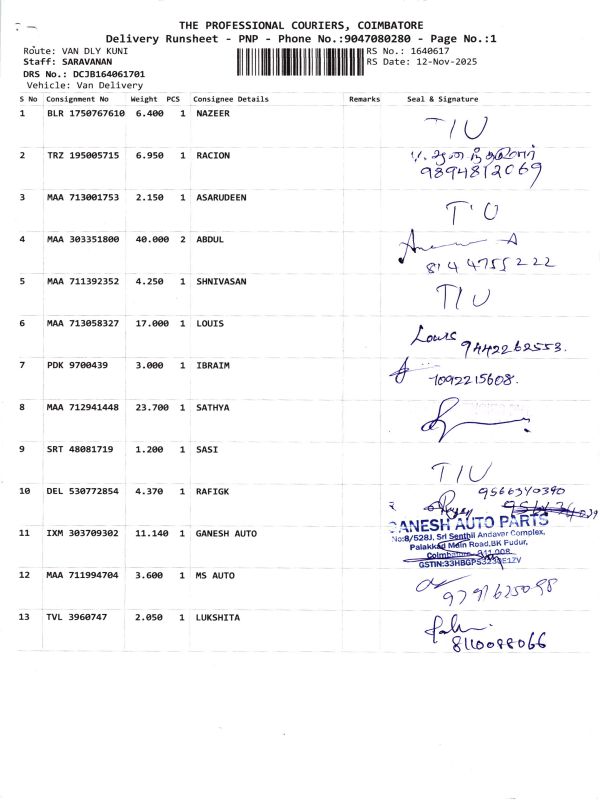 THE PROFESSIONAL COURIERS, COIMBATORE
Delivery Runsheet - PNP - Phone No.:9047080280 - Page No.:1
Route: VAN DLY KUNI RS No.: 1640617
Staff: SARAVANAN RS Date: 12-Nov-2025
DRS No.: DCJB164061701
Vehicle: Van Delivery
S No Consignment No Weight PCS Consignee Details Remarks Seal & Signature
1 BLR 1750767610 6.400 1 NAZEER T/U
2 TRZ 195005715 6.950 1 RACION
9894812069
3 MAA 713001753 2.150 1 ASARUDEEN T'U
4 MAA 303351800 40.000 2 ABDUL
8144755222
5 MAA 711392352 4.250 1 SHNIVASAN T/U
6 MAA 713058327 17.000 1 LOUIS Louis
9442262553.
7 PDK 9700439 3.000 1 IBRAIM
7092215608.
8 MAA 712941448 23.700 1 SATHYA
9 SRT 48081719 1.200 1 SASI T/U
10 DEL 530772854 4.370 1 RAFIGK 9566340390
GANESH AUTO PARTS
11 IXM 303709302 11.140 1 GANESH AUTO No:8/528J, Sri Senthil Andavar Complex,
Palakkad Main Road,BK Pudur,
Coimbatore
GSTIN:33HBGPS3230E1ZV
12 MAA 711994704 3.600 1 MS AUTO
9791625098
13 TVL 3960747 2.050 1 LUKSHITA
8110088066